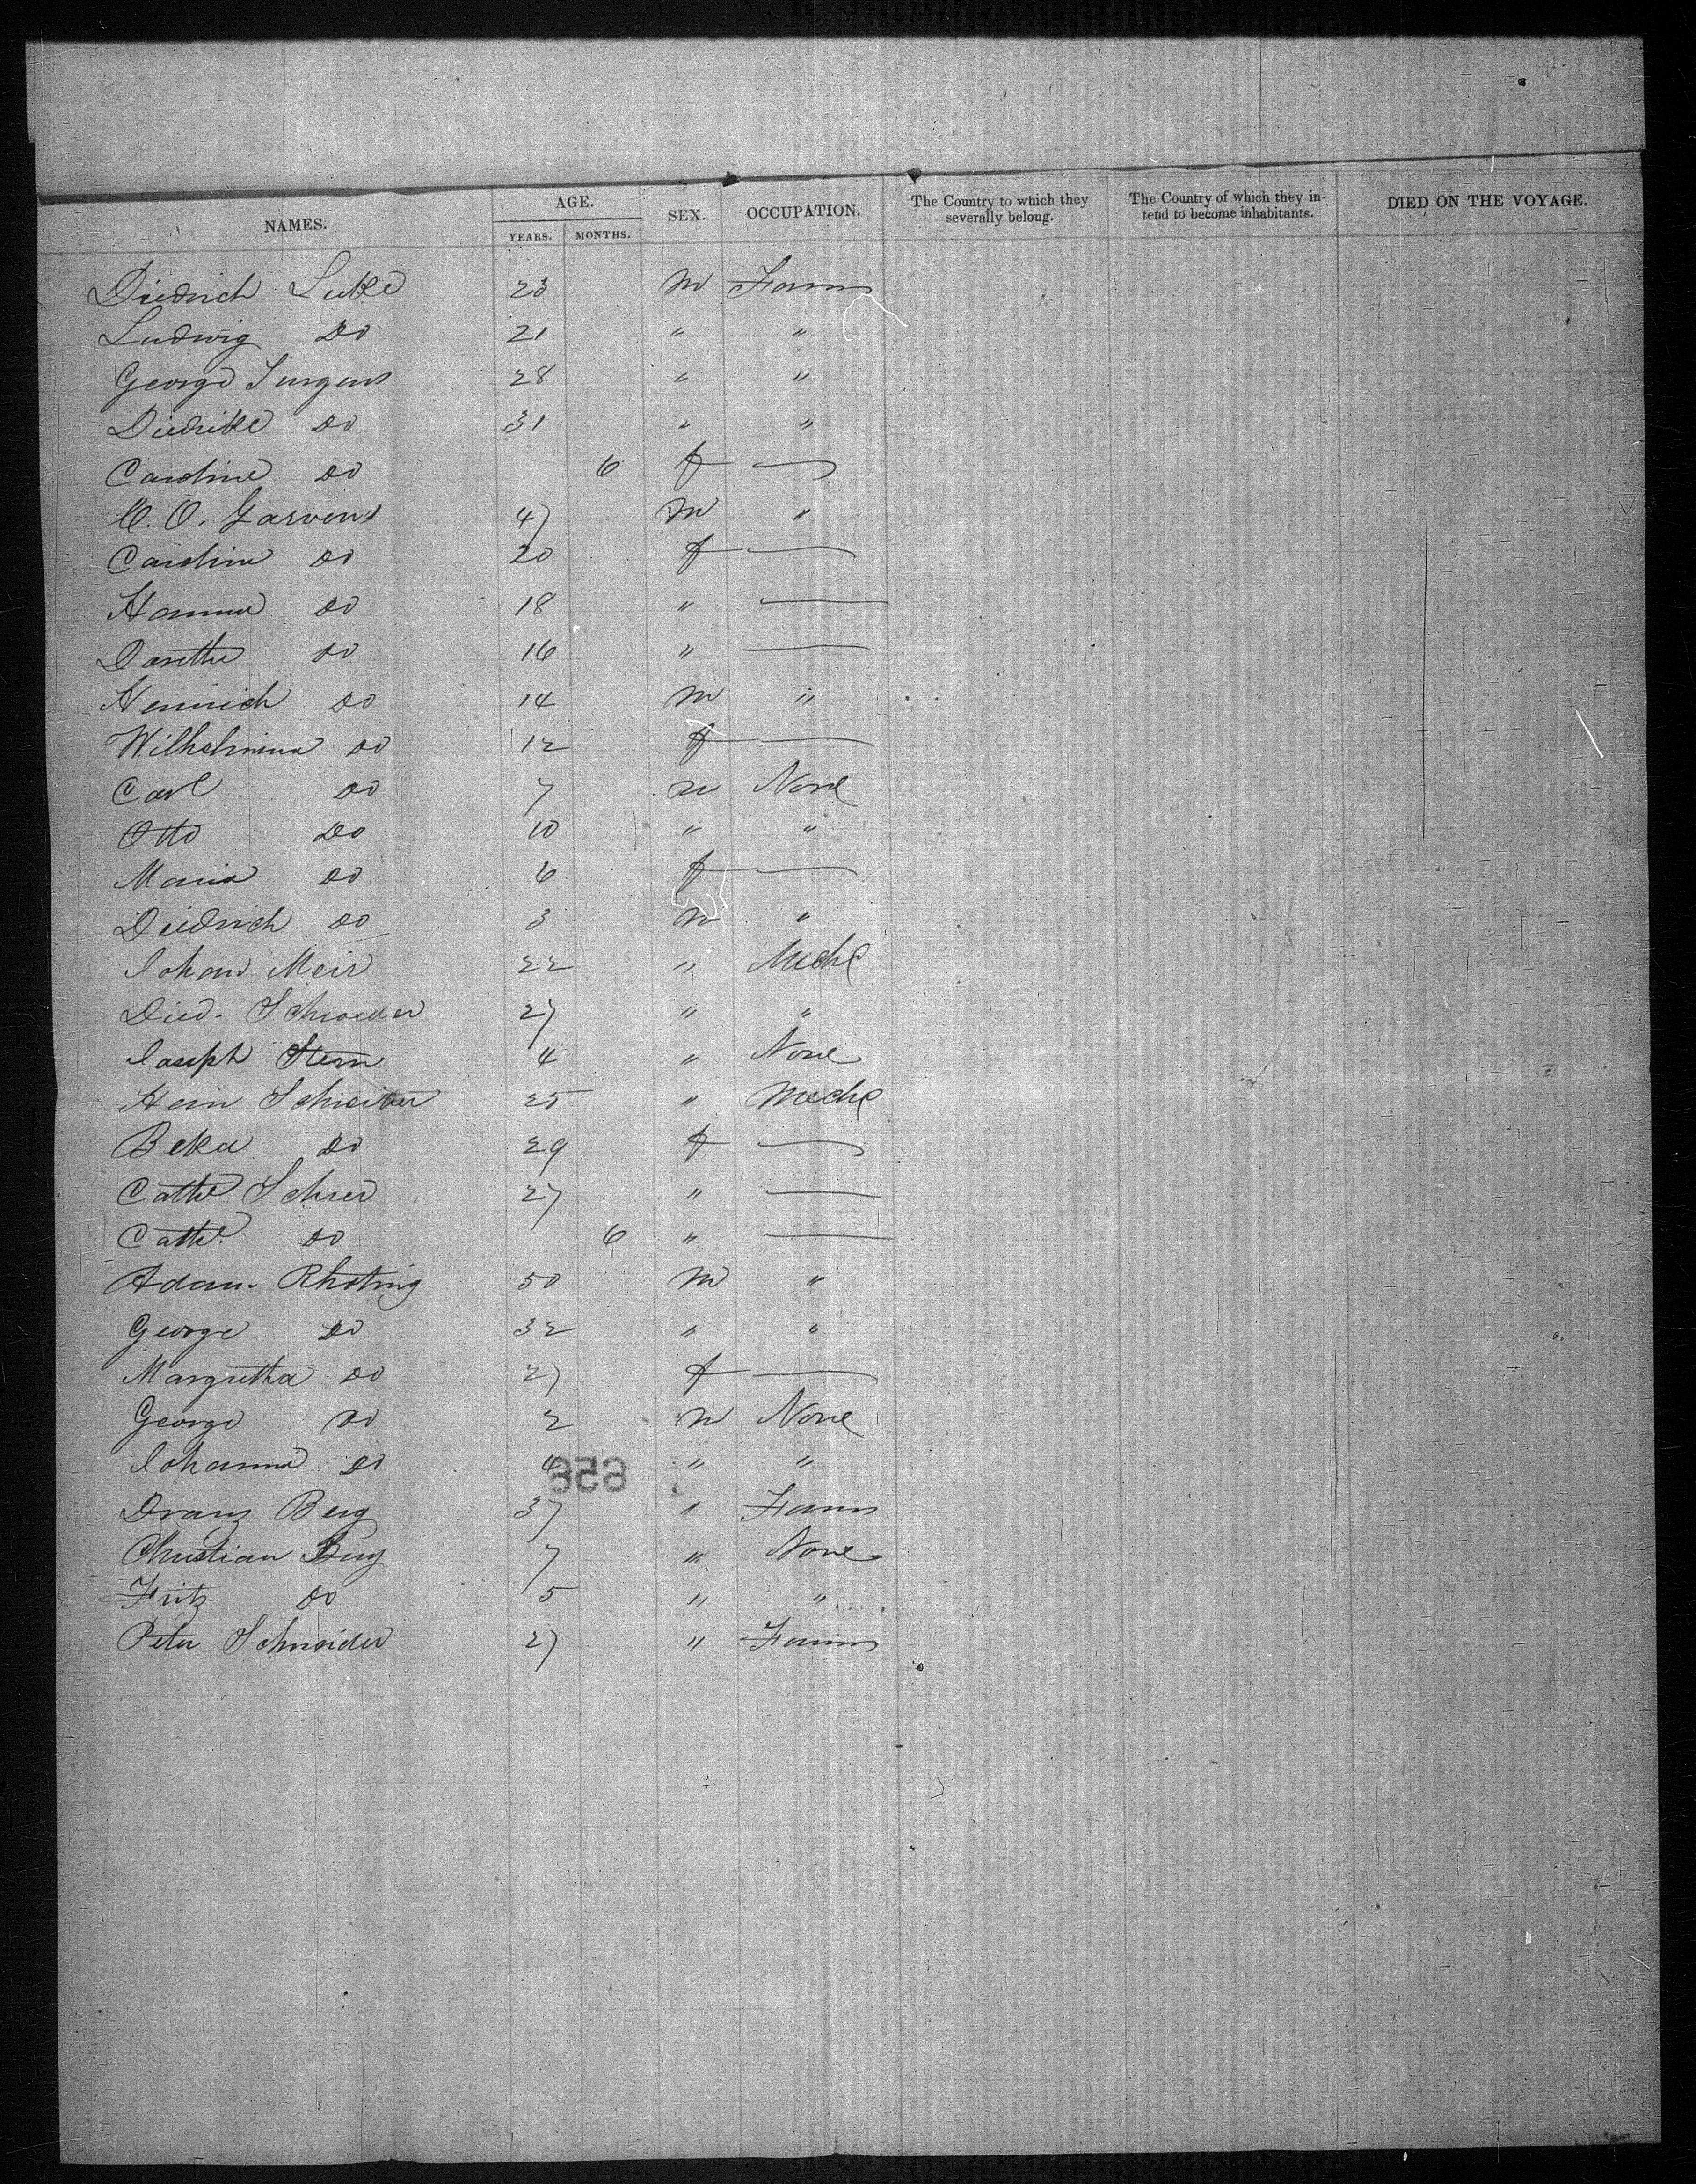 NAMES. AGE. SEX. OCCUPATION. The Country to which they severally belong. The Country of which they intend to become inhabitants. DIED ON THE VOYAGE.
YEARS. MONTHS.
Diedrich Luke 23 m Farm
Ludwig Do 21 " "
George Jurgens 28 " "
Diedrike Do 31 " "
Caroline Do 6 f —
C. O. Garvens 47 m "
Caroline Do 20 f —
Hanna Do 18 " —
Dorethe Do 16 " —
Heinrich Do 14 m "
Wilhelmina Do 12 f —
Carl Do 7 m None
Otto Do 10 " "
Maria Do 6 f —
Diedrich Do 3 m "
Johan Meir 22 " Mechc
Died. Schroeder 27 " "
Joseph Stern 4 " None
Hein Schreiber 25 " Mechc
Beka Do 29 f —
Cathe 27 " —
Cathe. Do 6 " —
Adam Rhoting 50 m "
George Do 32 " "
Margretha Do 27 f —
George Do 2 m None
Johanna Do 4 " "
656
Franz Berg 37 " Farm
Christian Berg 7 " None
Fritz Do 5 " "
Peter Schneider 27 " Farm